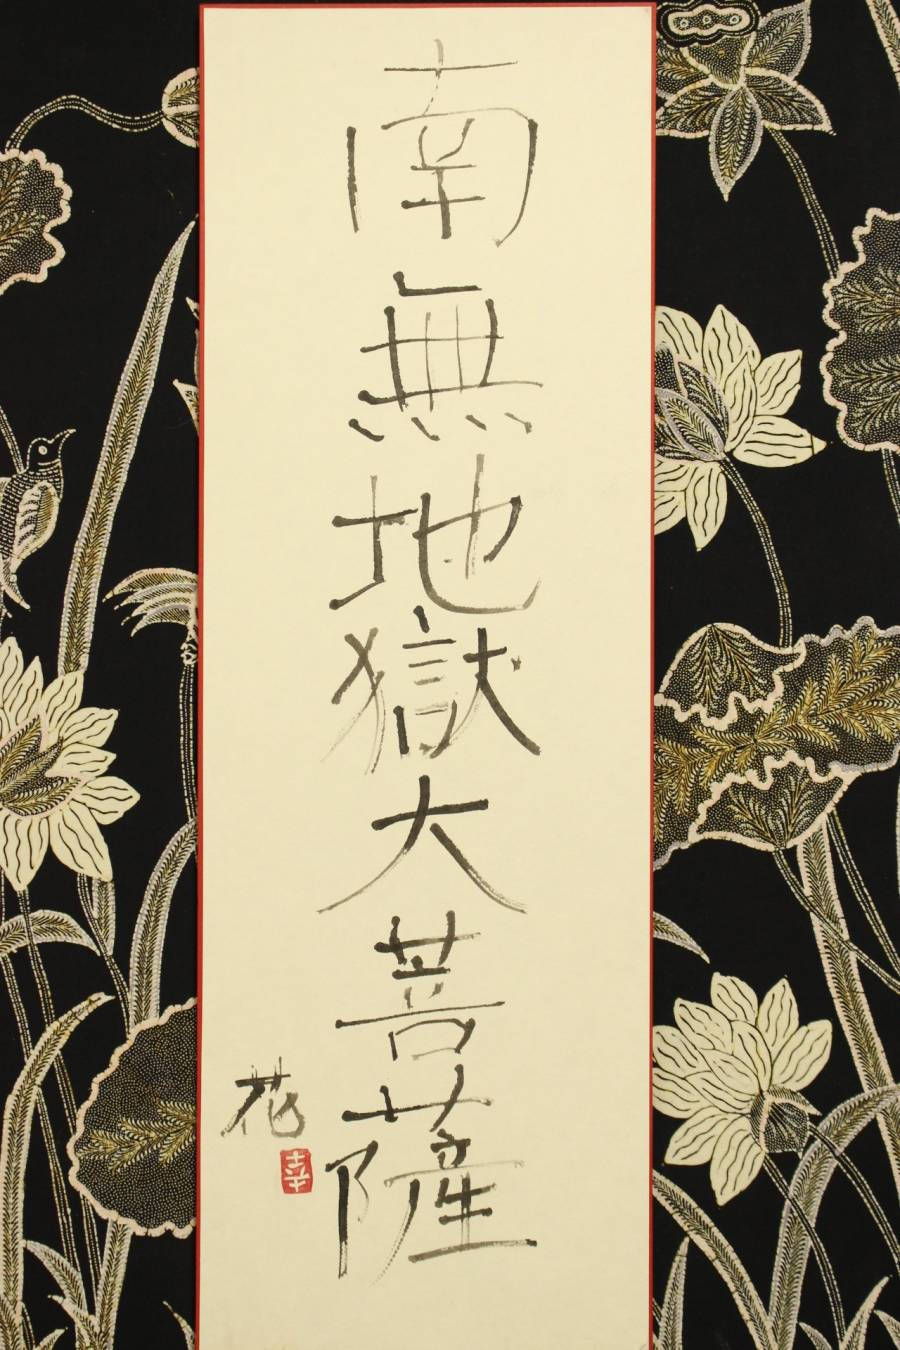 南無地獄大菩薩
花